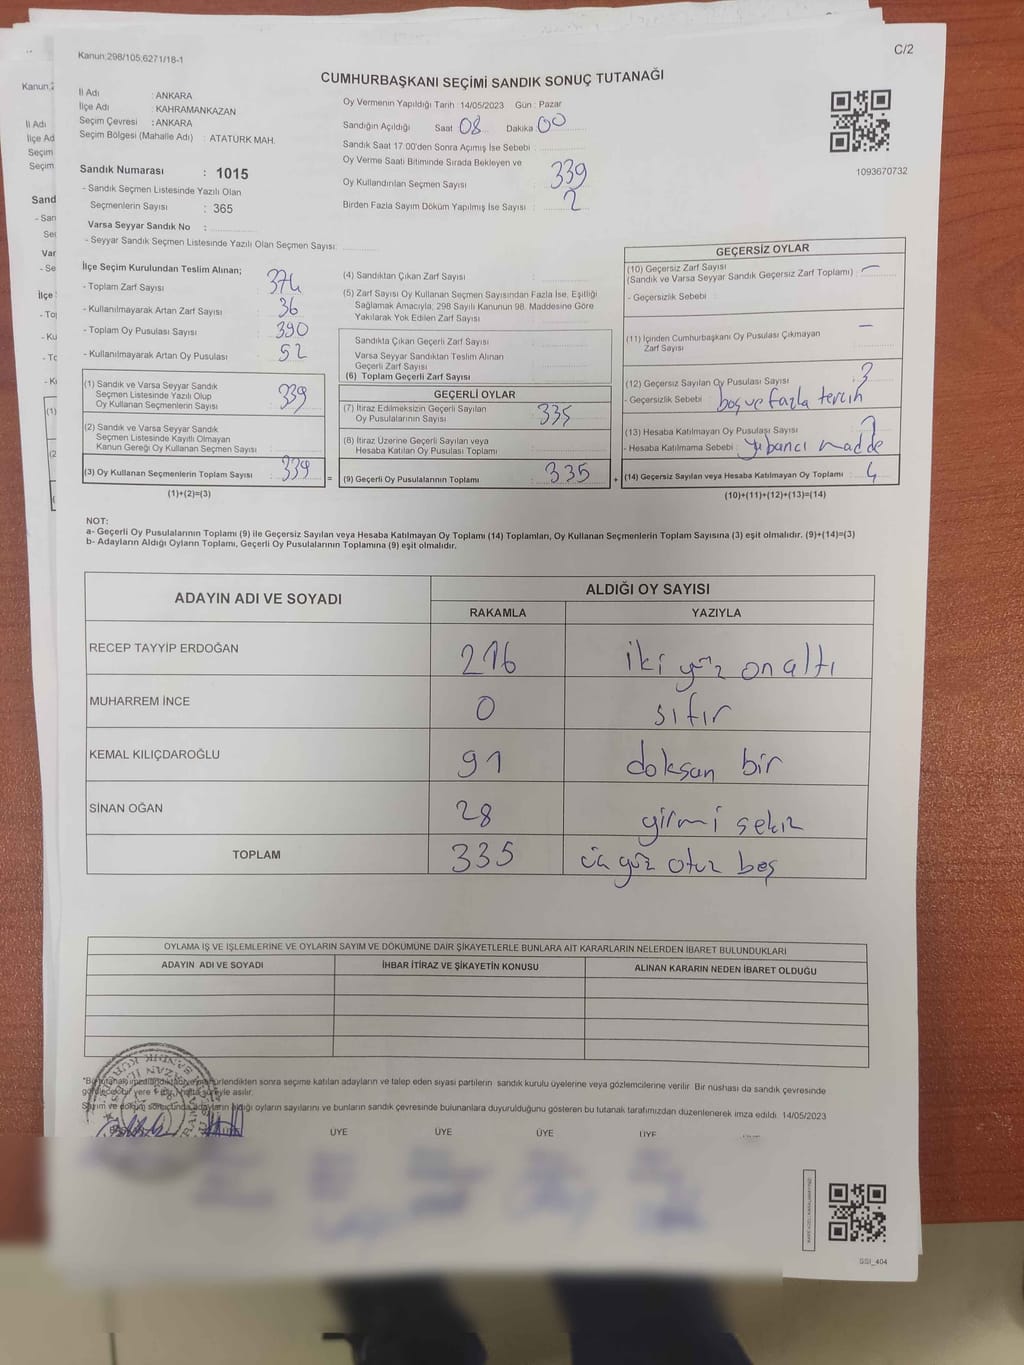 Kanun:298/105;6271/18-1
C/2
CUMHURBAŞKANI SEÇİMİ SANDIK SONUÇ TUTANAĞI
İl Adı : ANKARA
İlçe Adı : KAHRAMANKAZAN
Seçim Çevresi : ANKARA
Seçim Bölgesi (Mahalle Adı) : ATATÜRK MAH.
Sandık Numarası : 1015
- Sandık Seçmen Listesinde Yazılı Olan
Seçmenlerin Sayısı : 365
Varsa Seyyar Sandık No :
- Seyyar Sandık Seçmen Listesinde Yazılı Olan Seçmen Sayısı:
Oy Vermenin Yapıldığı Tarih :14/05/2023 Gün : Pazar
Sandığın Açıldığı Saat 08 Dakika 00
Sandık Saat 17:00'den Sonra Açılmış İse Sebebi :
Oy Verme Saati Bitiminde Sırada Bekleyen ve
Oy Kullandırılan Seçmen Sayısı : 339
Birden Fazla Sayım Döküm Yapılmış İse Sayısı : 2
1093670732
İlçe Seçim Kurulundan Teslim Alınan;
- Toplam Zarf Sayısı : 374
- Kullanılmayarak Artan Zarf Sayısı : 36
- Toplam Oy Pusulası Sayısı : 390
- Kullanılmayarak Artan Oy Pusulası : 52
(1) Sandık ve Varsa Seyyar Sandık
Seçmen Listesinde Yazılı Olup
Oy Kullanan Seçmenlerin Sayısı : 339
(2) Sandık ve Varsa Seyyar Sandık
Seçmen Listesinde Kayıtlı Olmayan
Kanun Gereği Oy Kullanan Seçmen Sayısı :
(3) Oy Kullanan Seçmenlerin Toplam Sayısı : 339 =
(1)+(2)=(3)
(4) Sandıktan Çıkan Zarf Sayısı :
(5) Zarf Sayısı Oy Kullanan Seçmen Sayısından Fazla İse, Eşitliği
Sağlamak Amacıyla; 298 Sayılı Kanunun 98. Maddesine Göre
Yakılarak Yok Edilen Zarf Sayısı :
Sandıkta Çıkan Geçerli Zarf Sayısı :
Varsa Seyyar Sandıktan Teslim Alınan
Geçerli Zarf Sayısı :
(6) Toplam Geçerli Zarf Sayısı :
GEÇERLİ OYLAR
(7) İtiraz Edilmeksizin Geçerli Sayılan
Oy Pusulasının Sayısı : 335
(8) İtiraz Üzerine Geçerli Sayılan veya
Hesaba Katılan Oy Pusulası Toplamı :
(9) Geçerli Oy Pusulalarının Toplamı : 335 +
GEÇERSİZ OYLAR
(10) Geçersiz Zarf Sayısı
(Sandık ve Varsa Seyyar Sandık Geçersiz Zarf Toplamı) : —
- Geçersizlik Sebebi :
(11) İçinden Cumhurbaşkanı Oy Pusulası Çıkmayan
Zarf Sayısı : —
(12) Geçersiz Sayılan Oy Pusulası Sayısı : 3
- Geçersizlik Sebebi : boş ve fazla tercih
(13) Hesaba Katılmayan Oy Pusulası Sayısı : 1
- Hesaba Katılmama Sebebi : yabancı madde
(14) Geçersiz Sayılan veya Hesaba Katılmayan Oy Toplamı : 4
(10)+(11)+(12)+(13)=(14)
NOT:
a- Geçerli Oy Pusulalarının Toplamı (9) ile Geçersiz Sayılan veya Hesaba Katılmayan Oy Toplamı (14) Toplamları, Oy Kullanan Seçmenlerin Toplam Sayısına (3) eşit olmalıdır. (9)+(14)=(3)
b- Adayların Aldığı Oyların Toplamı, Geçerli Oy Pusulalarının Toplamına (9) eşit olmalıdır.
ADAYIN ADI VE SOYADI
ALDIĞI OY SAYISI
RAKAMLA YAZIYLA
RECEP TAYYİP ERDOĞAN 216 iki yüz on altı
MUHARREM İNCE 0 sıfır
KEMAL KILIÇDAROĞLU 91 doksan bir
SİNAN OĞAN 28 yirmi sekiz
TOPLAM 335 üç yüz otuz beş
OYLAMA İŞ VE İŞLEMLERİNE VE OYLARIN SAYIM VE DÖKÜMÜNE DAİR ŞİKAYETLERLE BUNLARA AİT KARARLARIN NELERDEN İBARET BULUNDUKLARI
ADAYIN ADI VE SOYADI İHBAR İTİRAZ VE ŞİKAYETİN KONUSU ALINAN KARARIN NEDEN İBARET OLDUĞU
sonra seçime katılan adayların ve talep eden siyasi partilerin sandık kurulu üyelerine veya gözlemcilerine verilir. Bir nüshası da sandık çevresinde
asılır.
Sayım ve döküm sonucunda adayların aldığı oyların sayılarını ve bunların sandık çevresinde bulunanlara duyurulduğunu gösteren bu tutanak tarafımızdan düzenlenerek imza edildi. 14/05/2023
ÜYE ÜYE ÜYE ÜYE
GSI_404